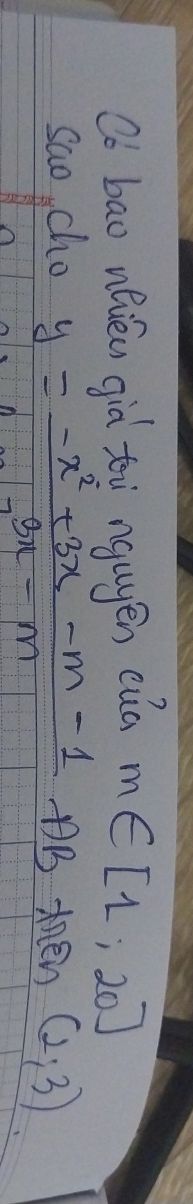 Có bao nhiêu giá trị nguyên của m ∈ [1; 20]
sao cho y = (-x² + 3x - m - 1)/(3x - m) ĐB trên (2; 3)